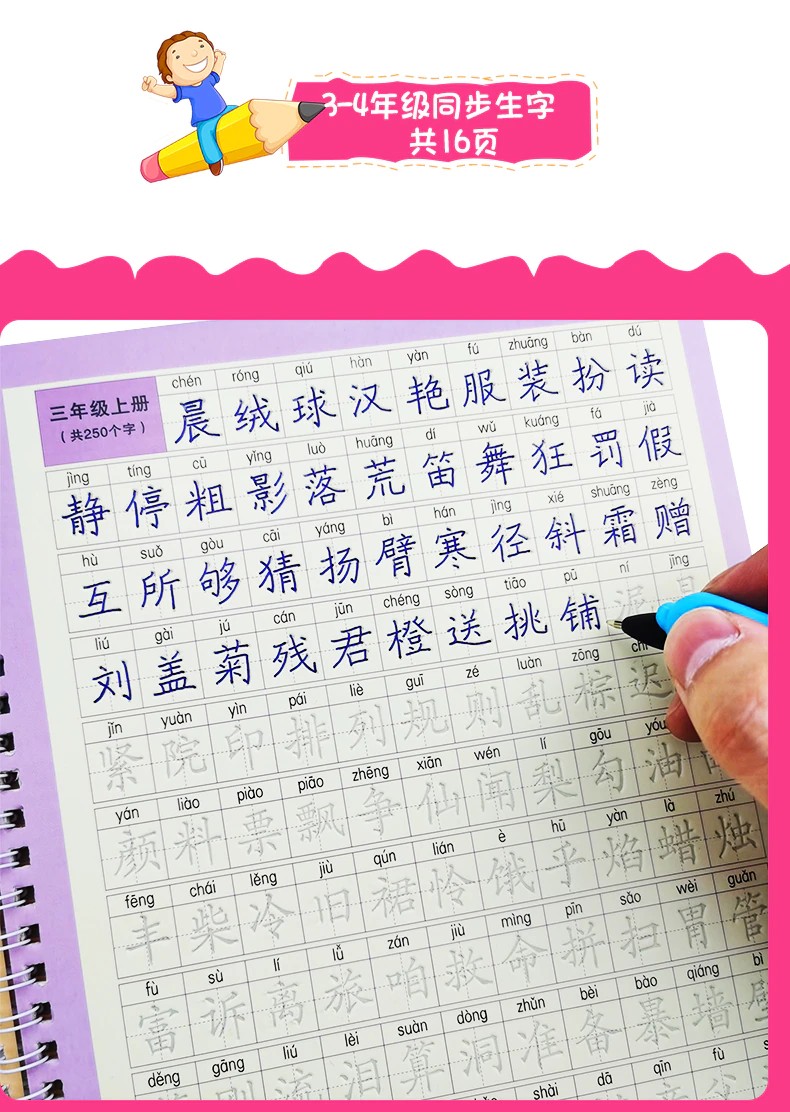 3-4年级同步生字
共16页
chén róng qiú hàn yàn fú zhuāng bàn dú
三年级上册
(共250个字)
晨 绒 球 汉 艳 服 装 扮 读
jìng tíng cū yǐng luò huāng dí wǔ kuáng fá jià
静 停 粗 影 落 荒 笛 舞 狂 罚 假
hù suǒ gòu cāi yáng bì hán jìng xié shuāng zèng
互 所 够 猜 扬 臂 寒 径 斜 霜 赠
liú gài jú cán jūn chéng sòng tiāo pū ní jīng
刘 盖 菊 残 君 橙 送 挑 铺 泥 晶
jǐn yuàn yìn pái liè guī zé luàn zōng
紧 院 印 排 列 规 则 乱 棕 迟
yán liào piào piāo zhēng xiān wén lí gōu yóu
颜 料 票 飘 争 仙 闻 梨 勾 油
fēng chái lěng jiù qún lián è hū yàn là zhú
丰 柴 冷 旧 裙 怜 饿 乎 焰 蜡 烛
fù sù lí lǚ zán jiù mìng pīn sǎo wèi guǎn
富 诉 离 旅 咱 救 命 拼 扫 胃 管
děng gāng liú lèi suàn dòng zhǔn bèi bào qiáng bì
等 刚 流 泪 算 洞 准 备 暴 墙 壁
shài dā qīn fù